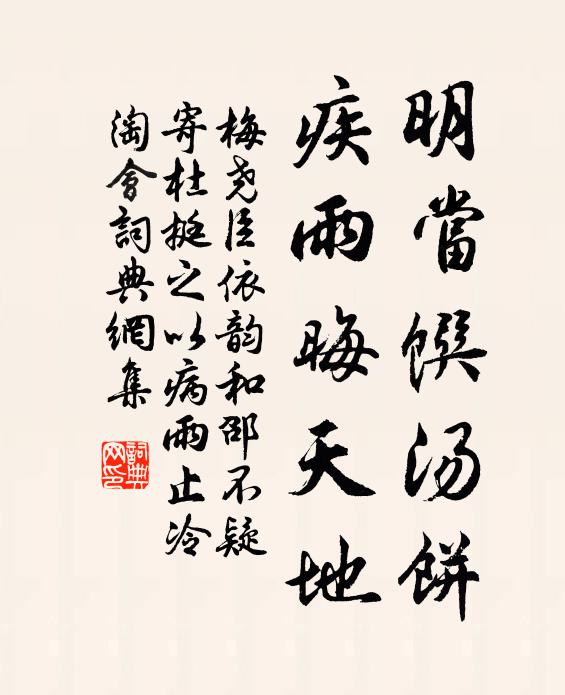 明當饌汤餅
疾雨晦天地
梅尧臣依韵和邵不疑
寄杜挺之以病雨止冷
淘會詞典網集
詞典
网印